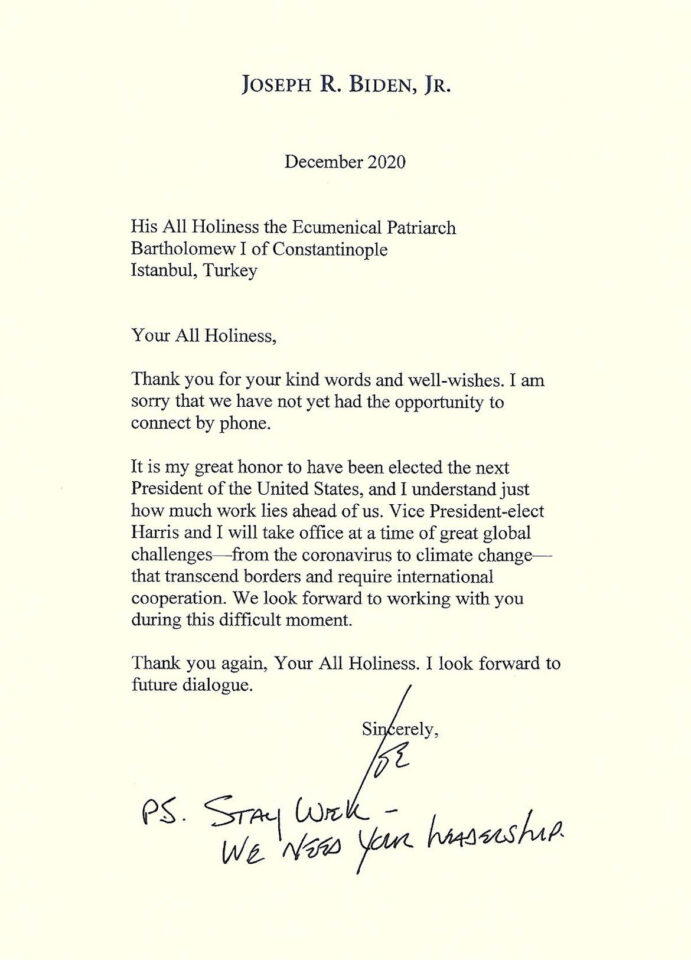 JOSEPH R. BIDEN, JR.
December 2020
His All Holiness the Ecumenical Patriarch
Bartholomew I of Constantinople
Istanbul, Turkey
Your All Holiness,
Thank you for your kind words and well-wishes. I am
sorry that we have not yet had the opportunity to
connect by phone.
It is my great honor to have been elected the next
President of the United States, and I understand just
how much work lies ahead of us. Vice President-elect
Harris and I will take office at a time of great global
challenges—from the coronavirus to climate change—
that transcend borders and require international
cooperation. We look forward to working with you
during this difficult moment.
Thank you again, Your All Holiness. I look forward to
future dialogue.
Sincerely,
JOE
P.S. STAY WELL –
WE NEED YOUR LEADERSHIP.